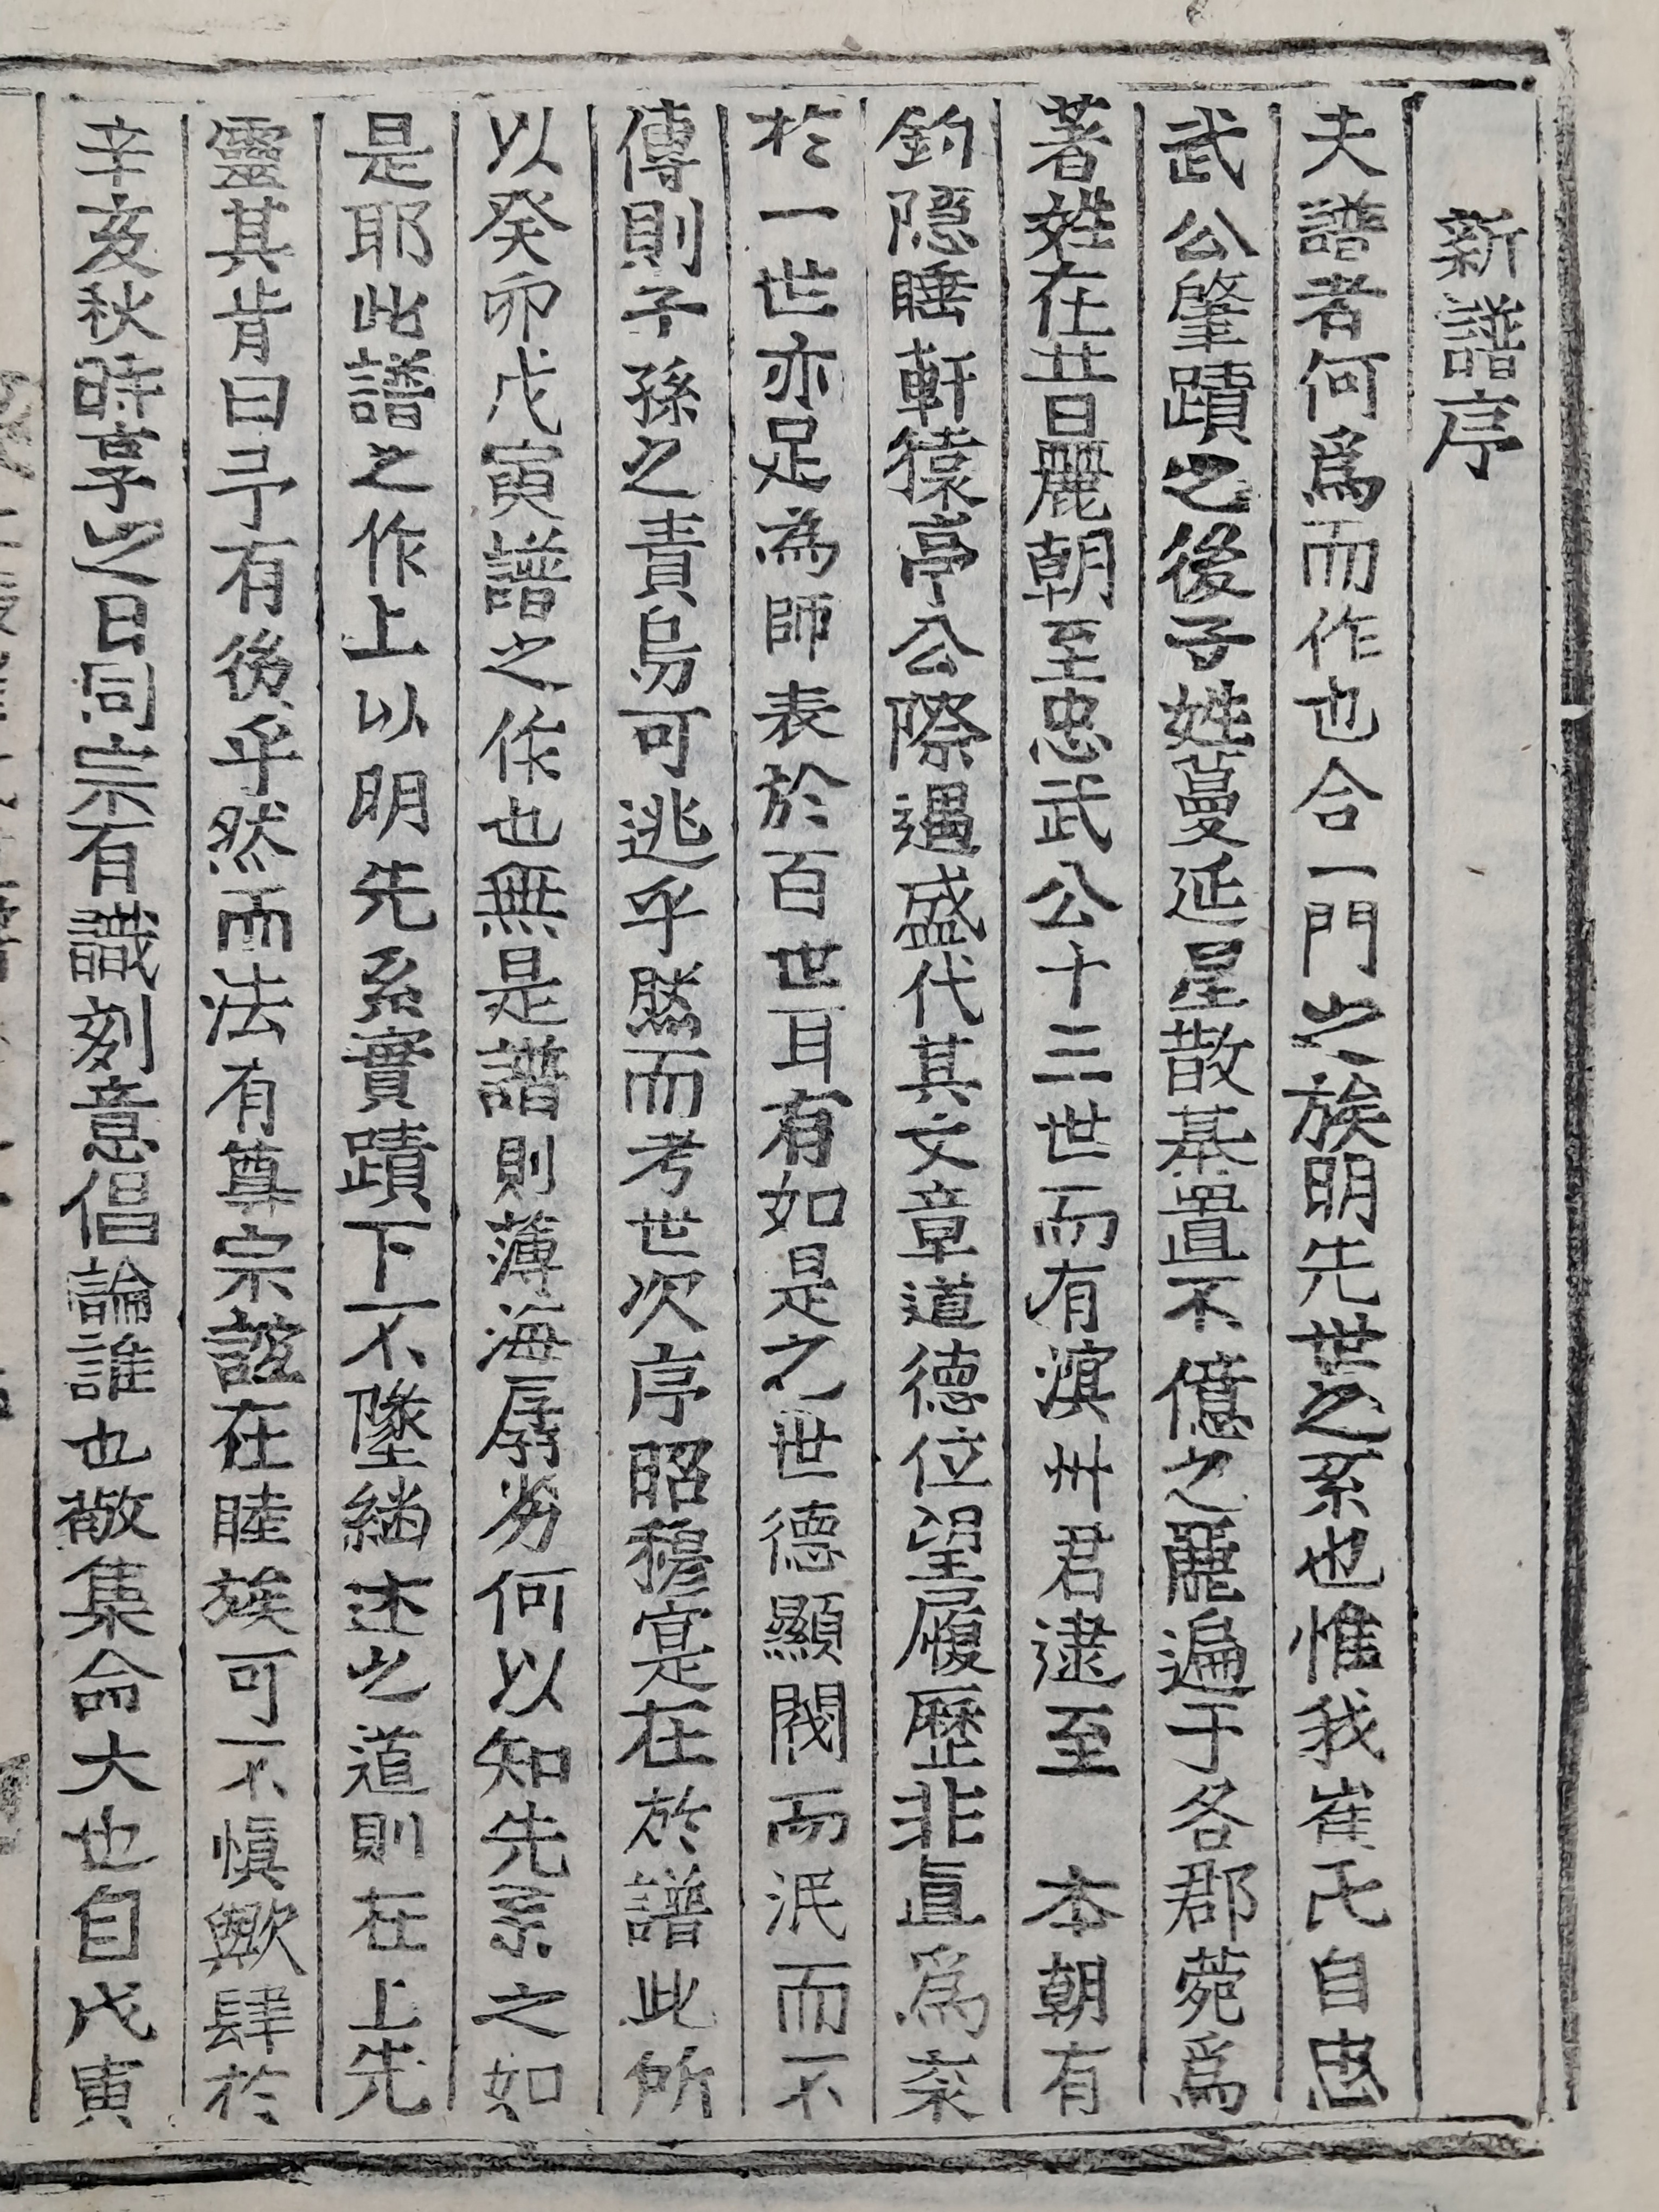 新譜序
夫譜者何爲而作也合一門之族明先世之系也惟我崔氏自忠
武公肇蹟之後子姓蔓延星散棊置不億之麗遍于各郡菀爲
著姓在昔麗朝至忠武公十三世而有濱州君逮至 本朝有
釣隱睡軒猿亭公際遇盛代其文章道德位望履歷非直爲菜
於一世亦足為師表於百世耳有如是之世德顯閥而泯而不
傳則子孫之責烏可逃乎然而考世次序昭穆寔在於譜此所
以癸卯戊寅譜之作也無是譜則薄海孱劣何以知先系之如
是耶此譜之作上以明先系實蹟下不墜緒述之道則在上先
靈其肯曰予有後乎然而法有尊宗誼在睦族可不愼歟肆於
辛亥秋時享之日同宗有識刻意倡論誰也敵集命大也自戊寅